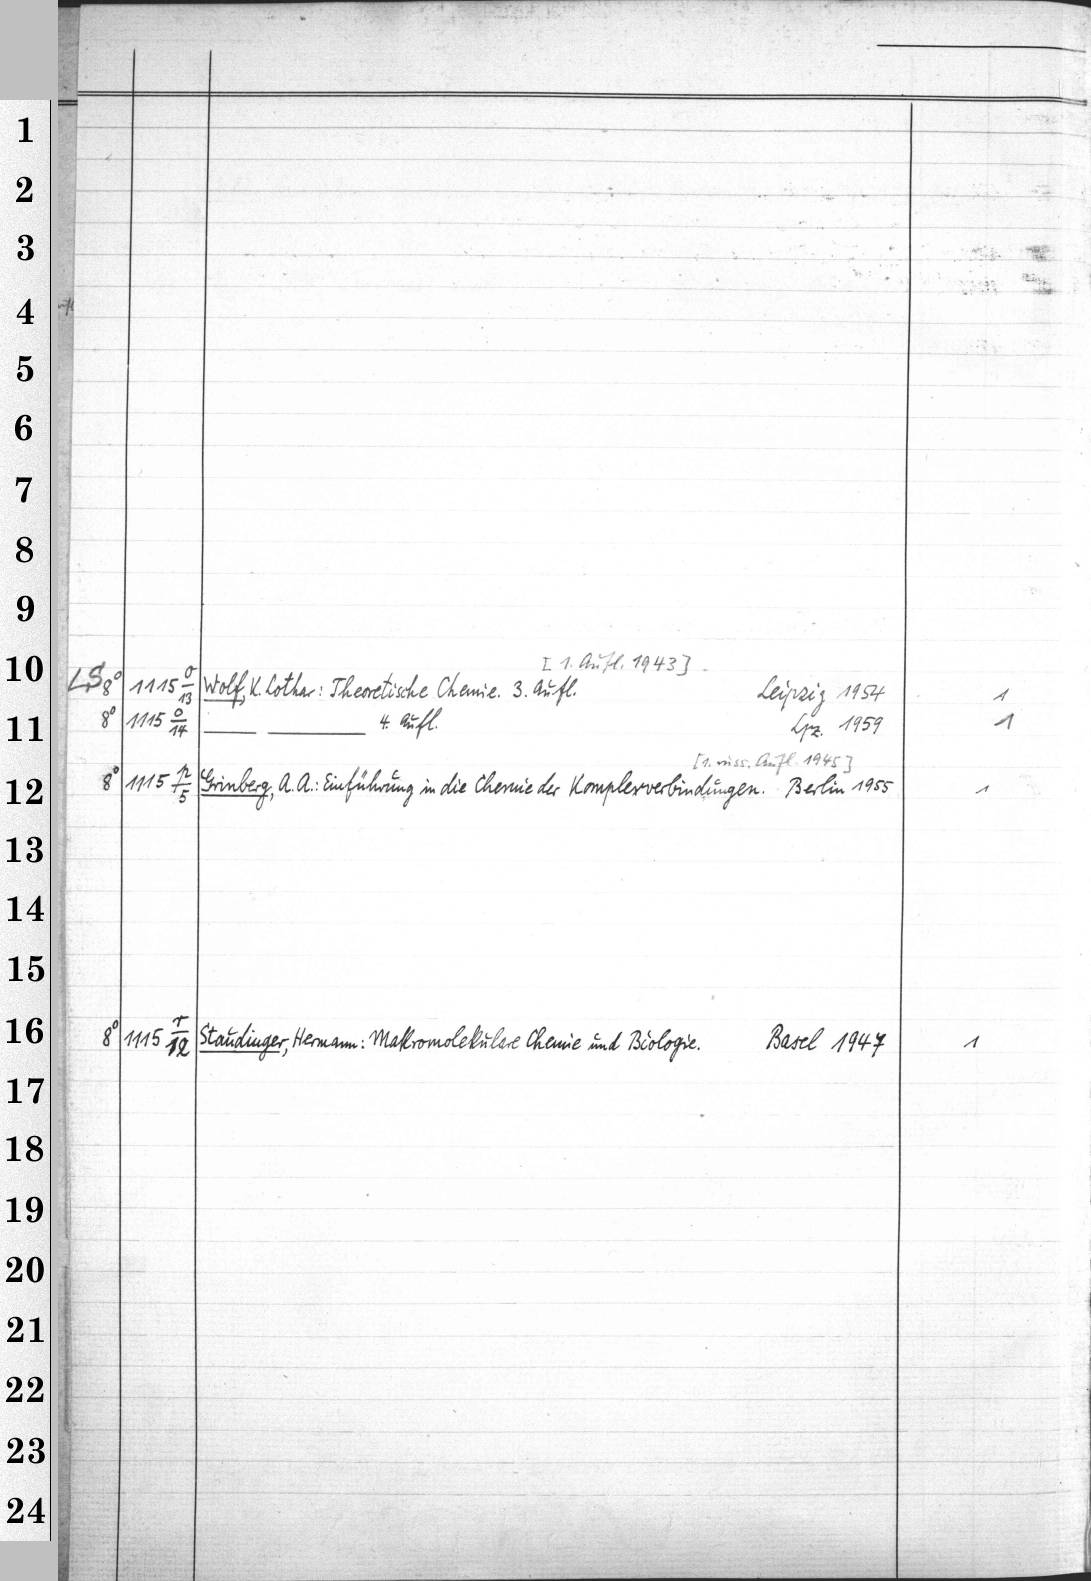 1
2
3
4
5
6
7
8
9
[1. Aufl. 1943]
10 LS 8° 1115 o/13 Wolf, K. Lothar: Theoretische Chemie. 3. Aufl. Leipzig 1954 1
11 8° 1115 o/14 —— —— 4. Aufl. Lpz. 1959 1
[1. russ. Aufl. 1945]
12 8° 1115 p/5 Grinberg, A. A.: Einführung in die Chemie der Komplexverbindungen. Berlin 1955 1
13
14
15
16 8° 1115 r/12 Staudinger, Hermann: Makromolekulare Chemie und Biologie. Basel 1947 1
17
18
19
20
21
22
23
24